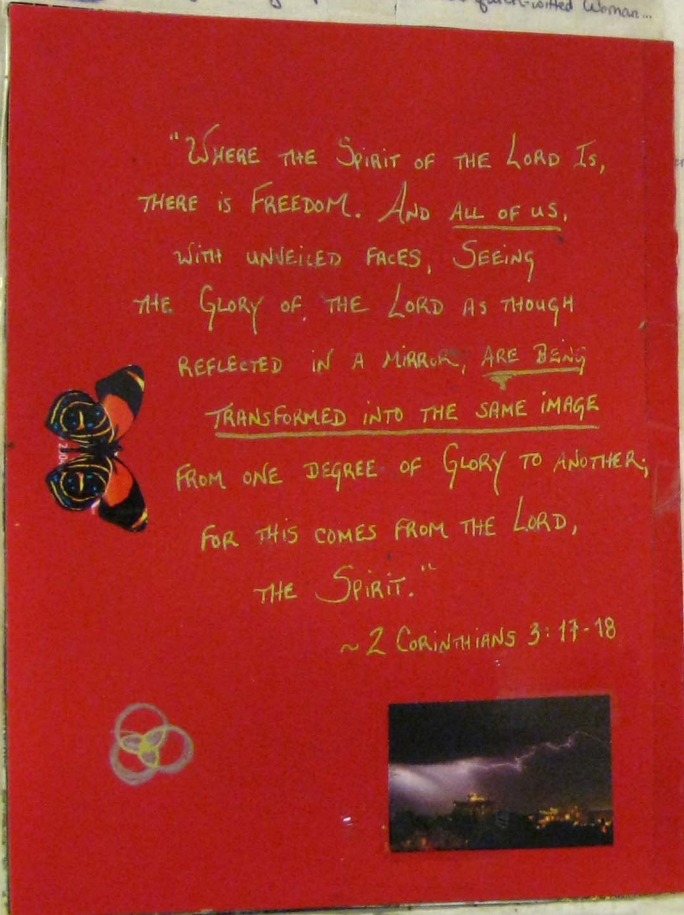 quick-witted Woman...
"Where the Spirit of the Lord Is,
there is Freedom. And all of us,
with unveiled faces, Seeing
the Glory of the Lord as though
reflected in a mirror, are being
transformed into the same image
from one degree of Glory to another;
for this comes from the Lord,
the Spirit."
~2 Corinthians 3:17-18